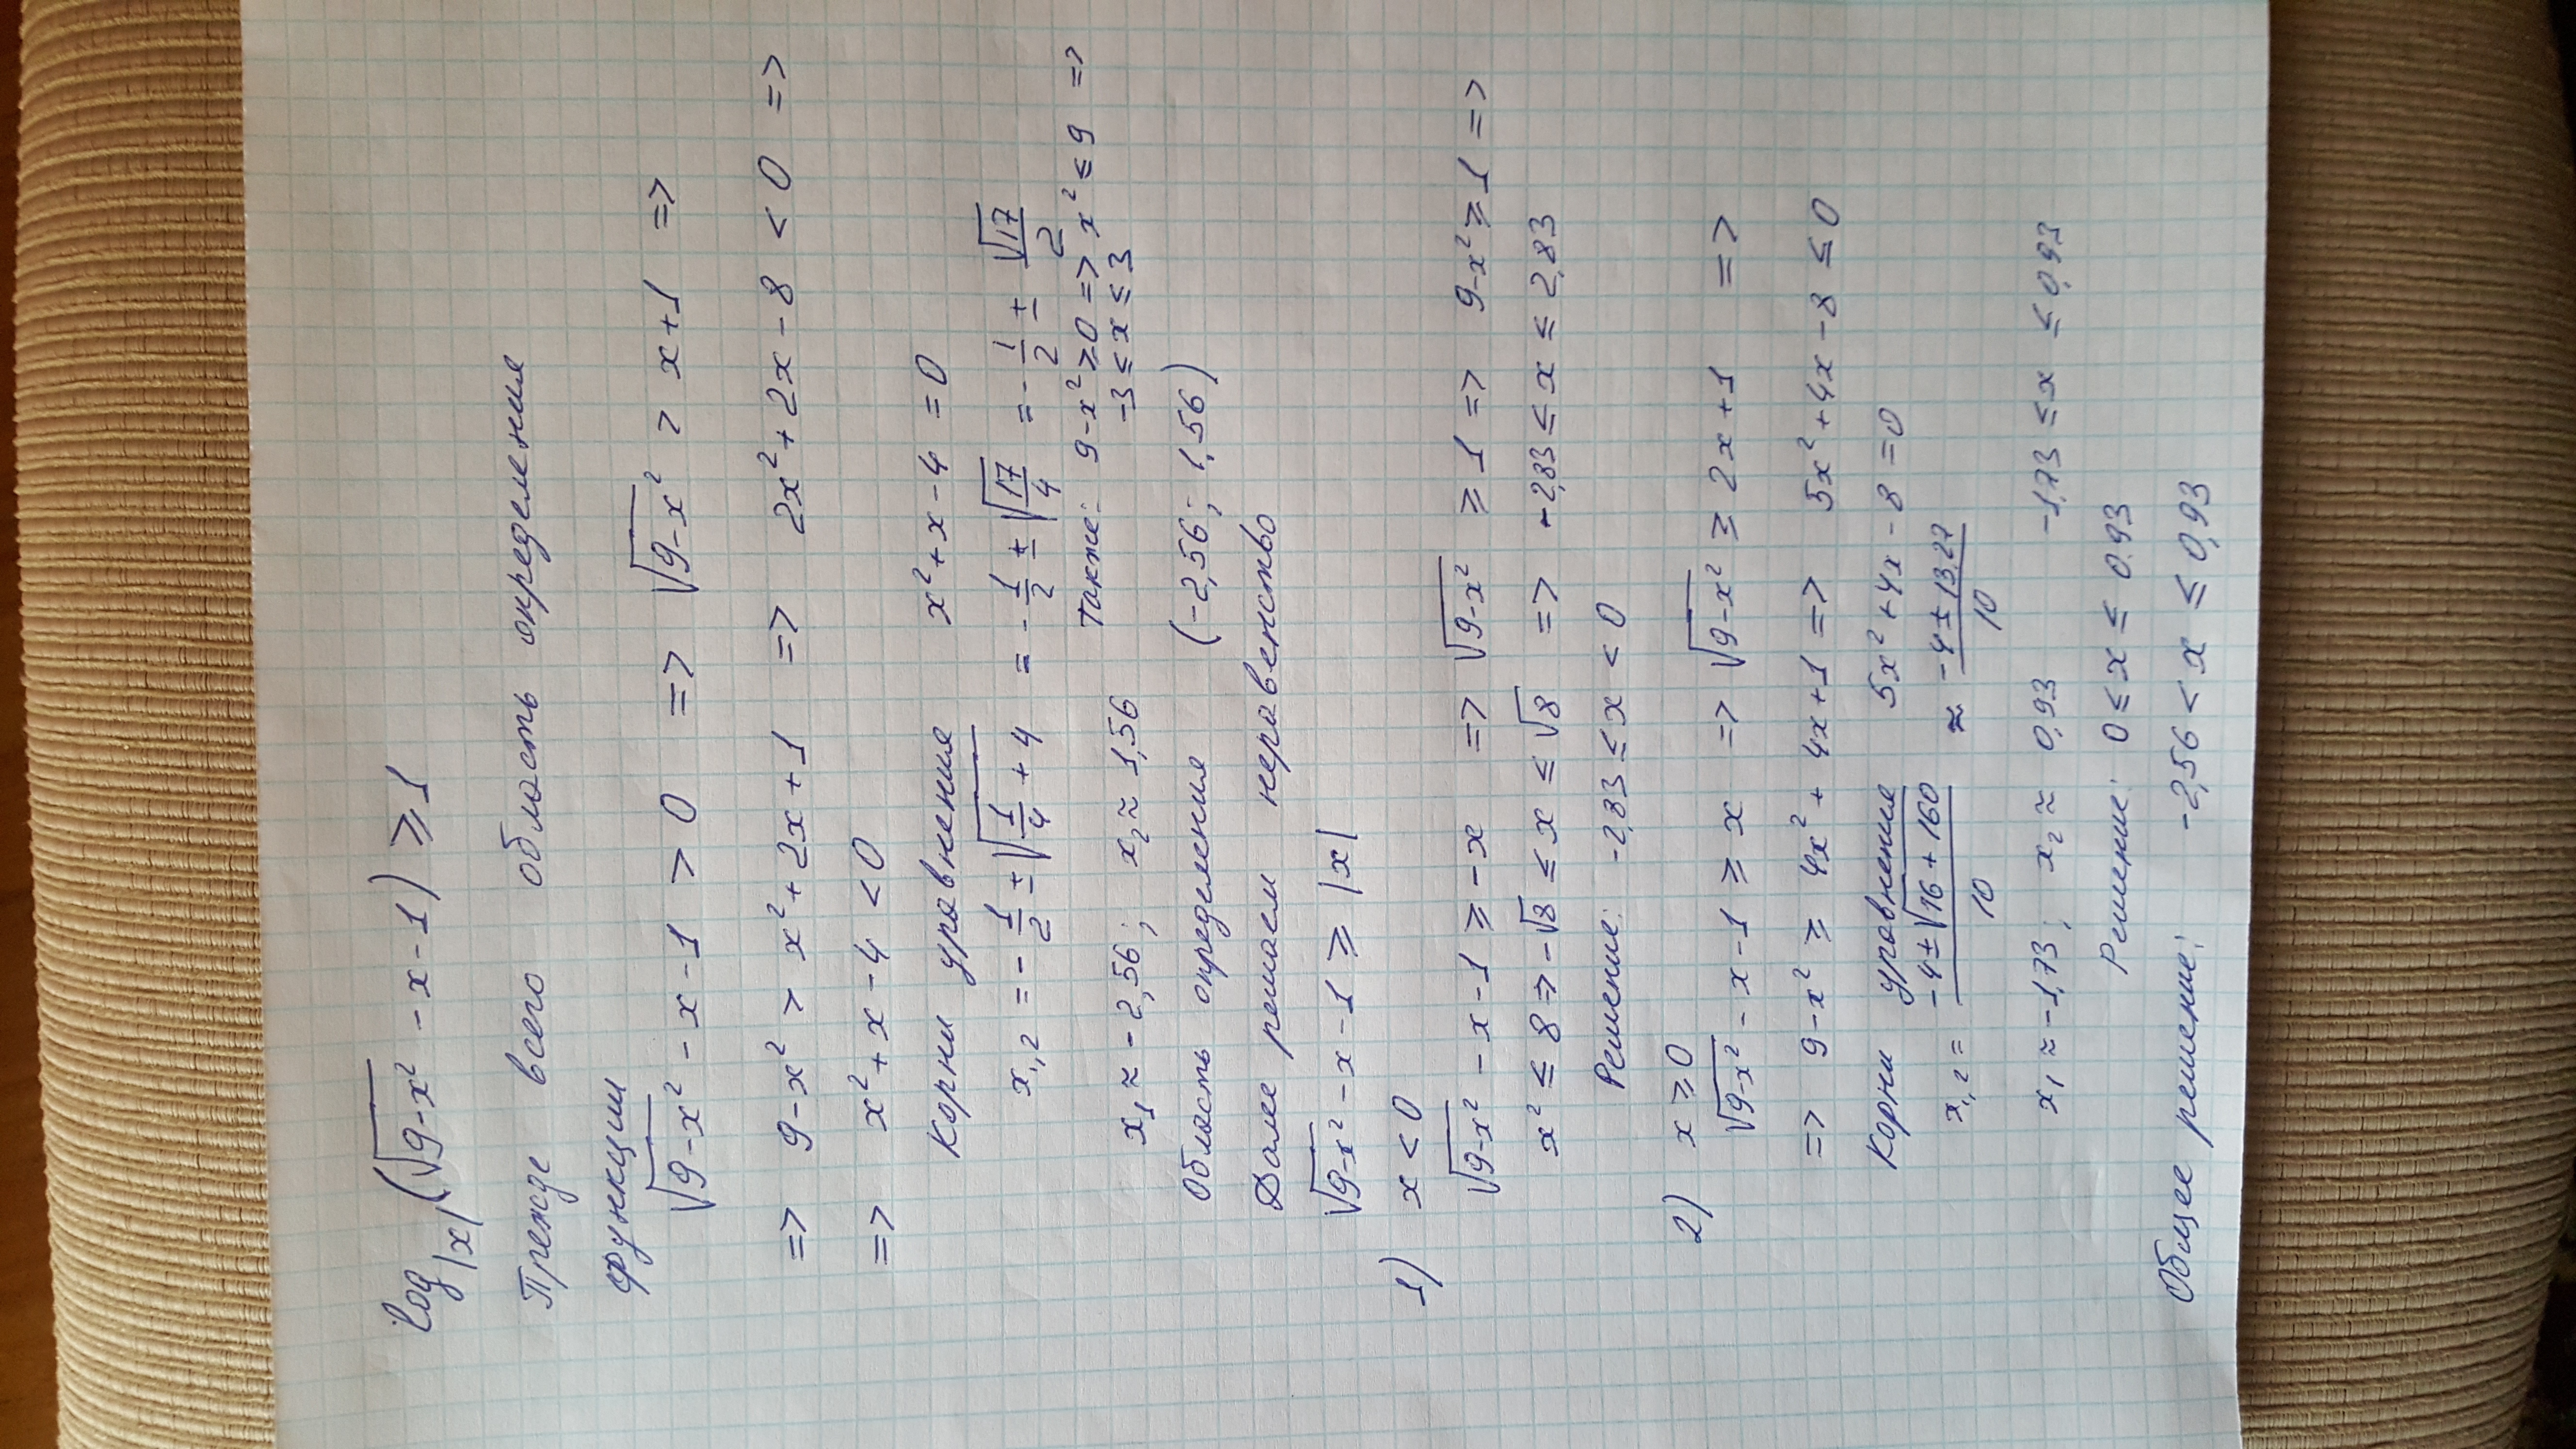 log|x|(√(9-x²) - x - 1) ≥ 1
Прежде всего область определения
функции
√(9-x²) - x - 1 > 0 => √(9-x²) > x+1 =>
=> 9-x² > x²+2x+1 => 2x²+2x-8 < 0 =>
=> x²+x-4 < 0
Корни уравнения x²+x-4 = 0
x₁,₂ = -1/2 ± √(1/4 + 4) = -1/2 ± √(17/4) = -1/2 ± √17/2
Также: 9-x² ≥ 0 => x² ≤ 9 =>
x₁ ≈ -2,56; x₂ ≈ 1,56 -3 ≤ x ≤ 3
Область определения (-2,56; 1,56)
Далее решаем неравенство
√(9-x²) - x - 1 ≥ |x|
1) x < 0
√(9-x²) - x - 1 ≥ -x => √(9-x²) ≥ 1 => 9-x² ≥ 1 =>
x² ≤ 8 => -√8 ≤ x ≤ √8 => -2,83 ≤ x ≤ 2,83
Решение: -2,83 ≤ x < 0
2) x ≥ 0
√(9-x²) - x - 1 ≥ x => √(9-x²) ≥ 2x+1 =>
=> 9-x² ≥ 4x² + 4x+1 => 5x²+4x-8 ≤ 0
Корни уравнения 5x²+4x-8 = 0
x₁,₂ = (-4 ± √(16+160))/10 ≈ (-4 ± 13,27)/10
x₁ ≈ -1,73; x₂ ≈ 0,93 -1,73 ≤ x ≤ 0,93
Решение: 0 ≤ x ≤ 0,93
Общее решение: -2,56 < x ≤ 0,93